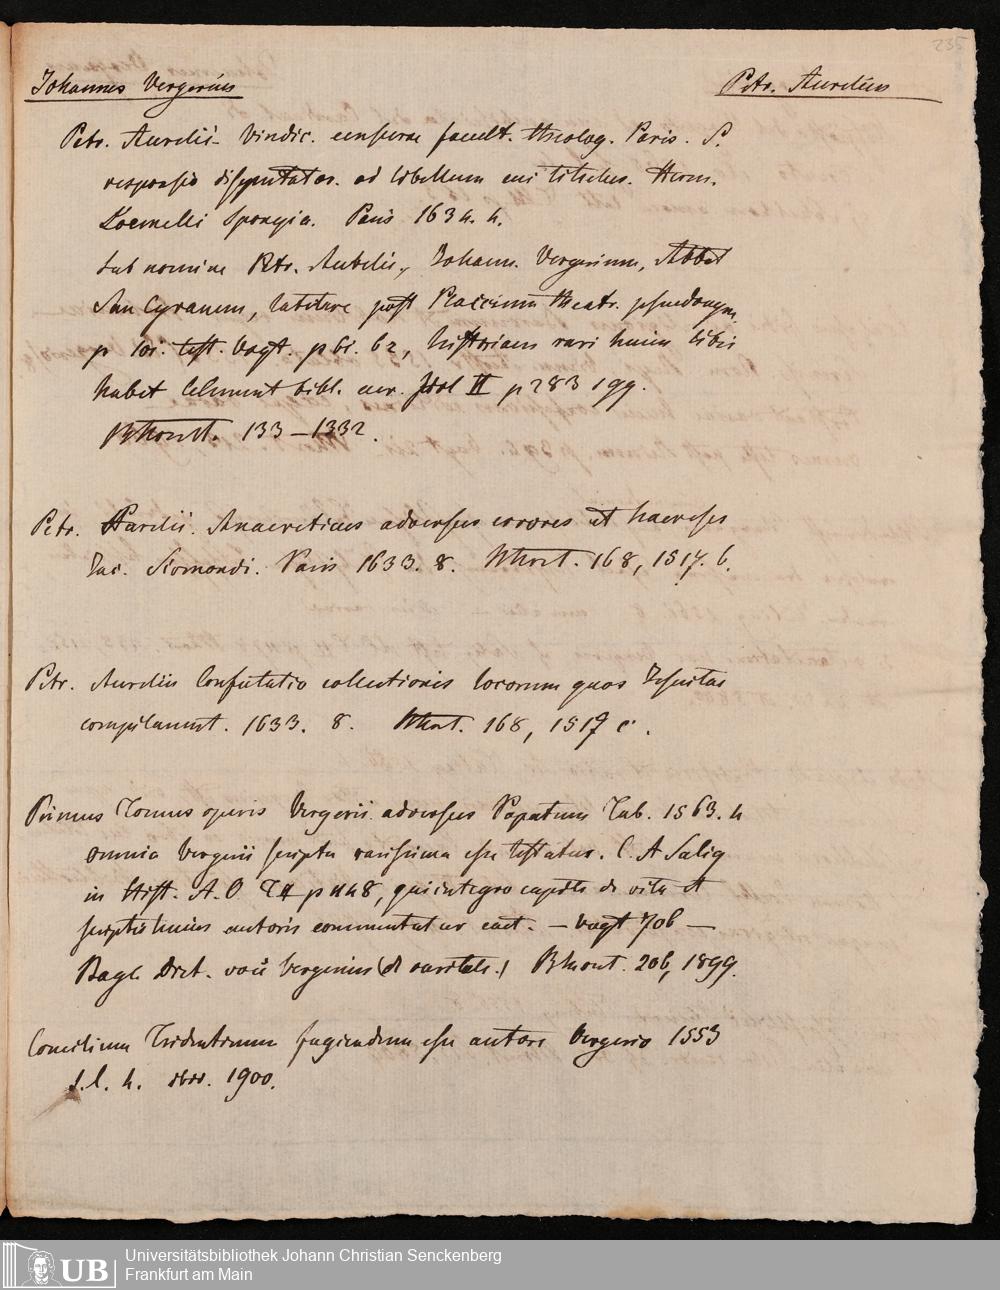 235
Johannes Vergerius Petr. Aurelius
Petr. Aurelii Vindic. censurae facult. theolog. Paris. S.
responsio disputator. ad libellum cui titulus. Herm.
Loemelii Spongia. Paris 1634. 4.
sub nomine Petr. Aurelii, Johann. Vergerium, Abbat
San Cyranum, latitare post Placcium theatr. pseudonym.
p 101. test. Vogt. p 61. 62, historiam rari huius libri
habet Clement bibl. cur. Vol II p 283 199.
133–1332.
Petr. Aurelii. Anaereticus adversus errores et haereses
Jac. Sirmondi. Paris 1633. 8. 168, 1517. b.
Petr. Aurelii Confutatio collectionis locorum quos Jesuitae
compilarunt. 1633. 8. 168, 1517 c.
Primus Tomus operis Vergerii adversus Papatum Tub. 1563. 4
omnia Vergerii scripta rarissima esse testatur. C. A Salig
in Hist. A. C. T II p 1148, qui integro capite de vita et
scriptis huius autoris commentatur eact. – Vogt 706 –
Bayle Dict. voce Vergerius (de raritate.) 206, 1899.
Concilium Tridentinum fugiendum esse autore Vergerio 1553
s. l. 4. 1900.
UB Universitätsbibliothek Johann Christian Senckenberg
Frankfurt am Main